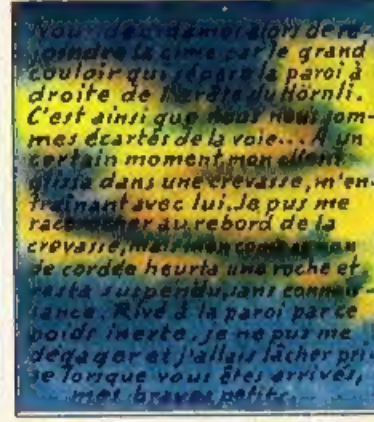 Nous décidâmes alors de re-
joindre la cime par le grand
couloir qui sépare la paroi à
droite de l'arête du Hörnli.
C'est ainsi que nous nous som-
mes écartés de la voie... A un
certain moment mon client
glissa dans une crevasse, m'en-
traînant avec lui. Je pus me
raccrocher au rebord de la
crevasse, mais mon compagnon
de cordée heurta une roche et
resta suspendu, sans connais-
sance. Rivé à la paroi par ce
poids inerte, je ne pus me
dégager et j'allais lâcher pri-
se lorsque vous êtes arrivés,
mes braves petits...